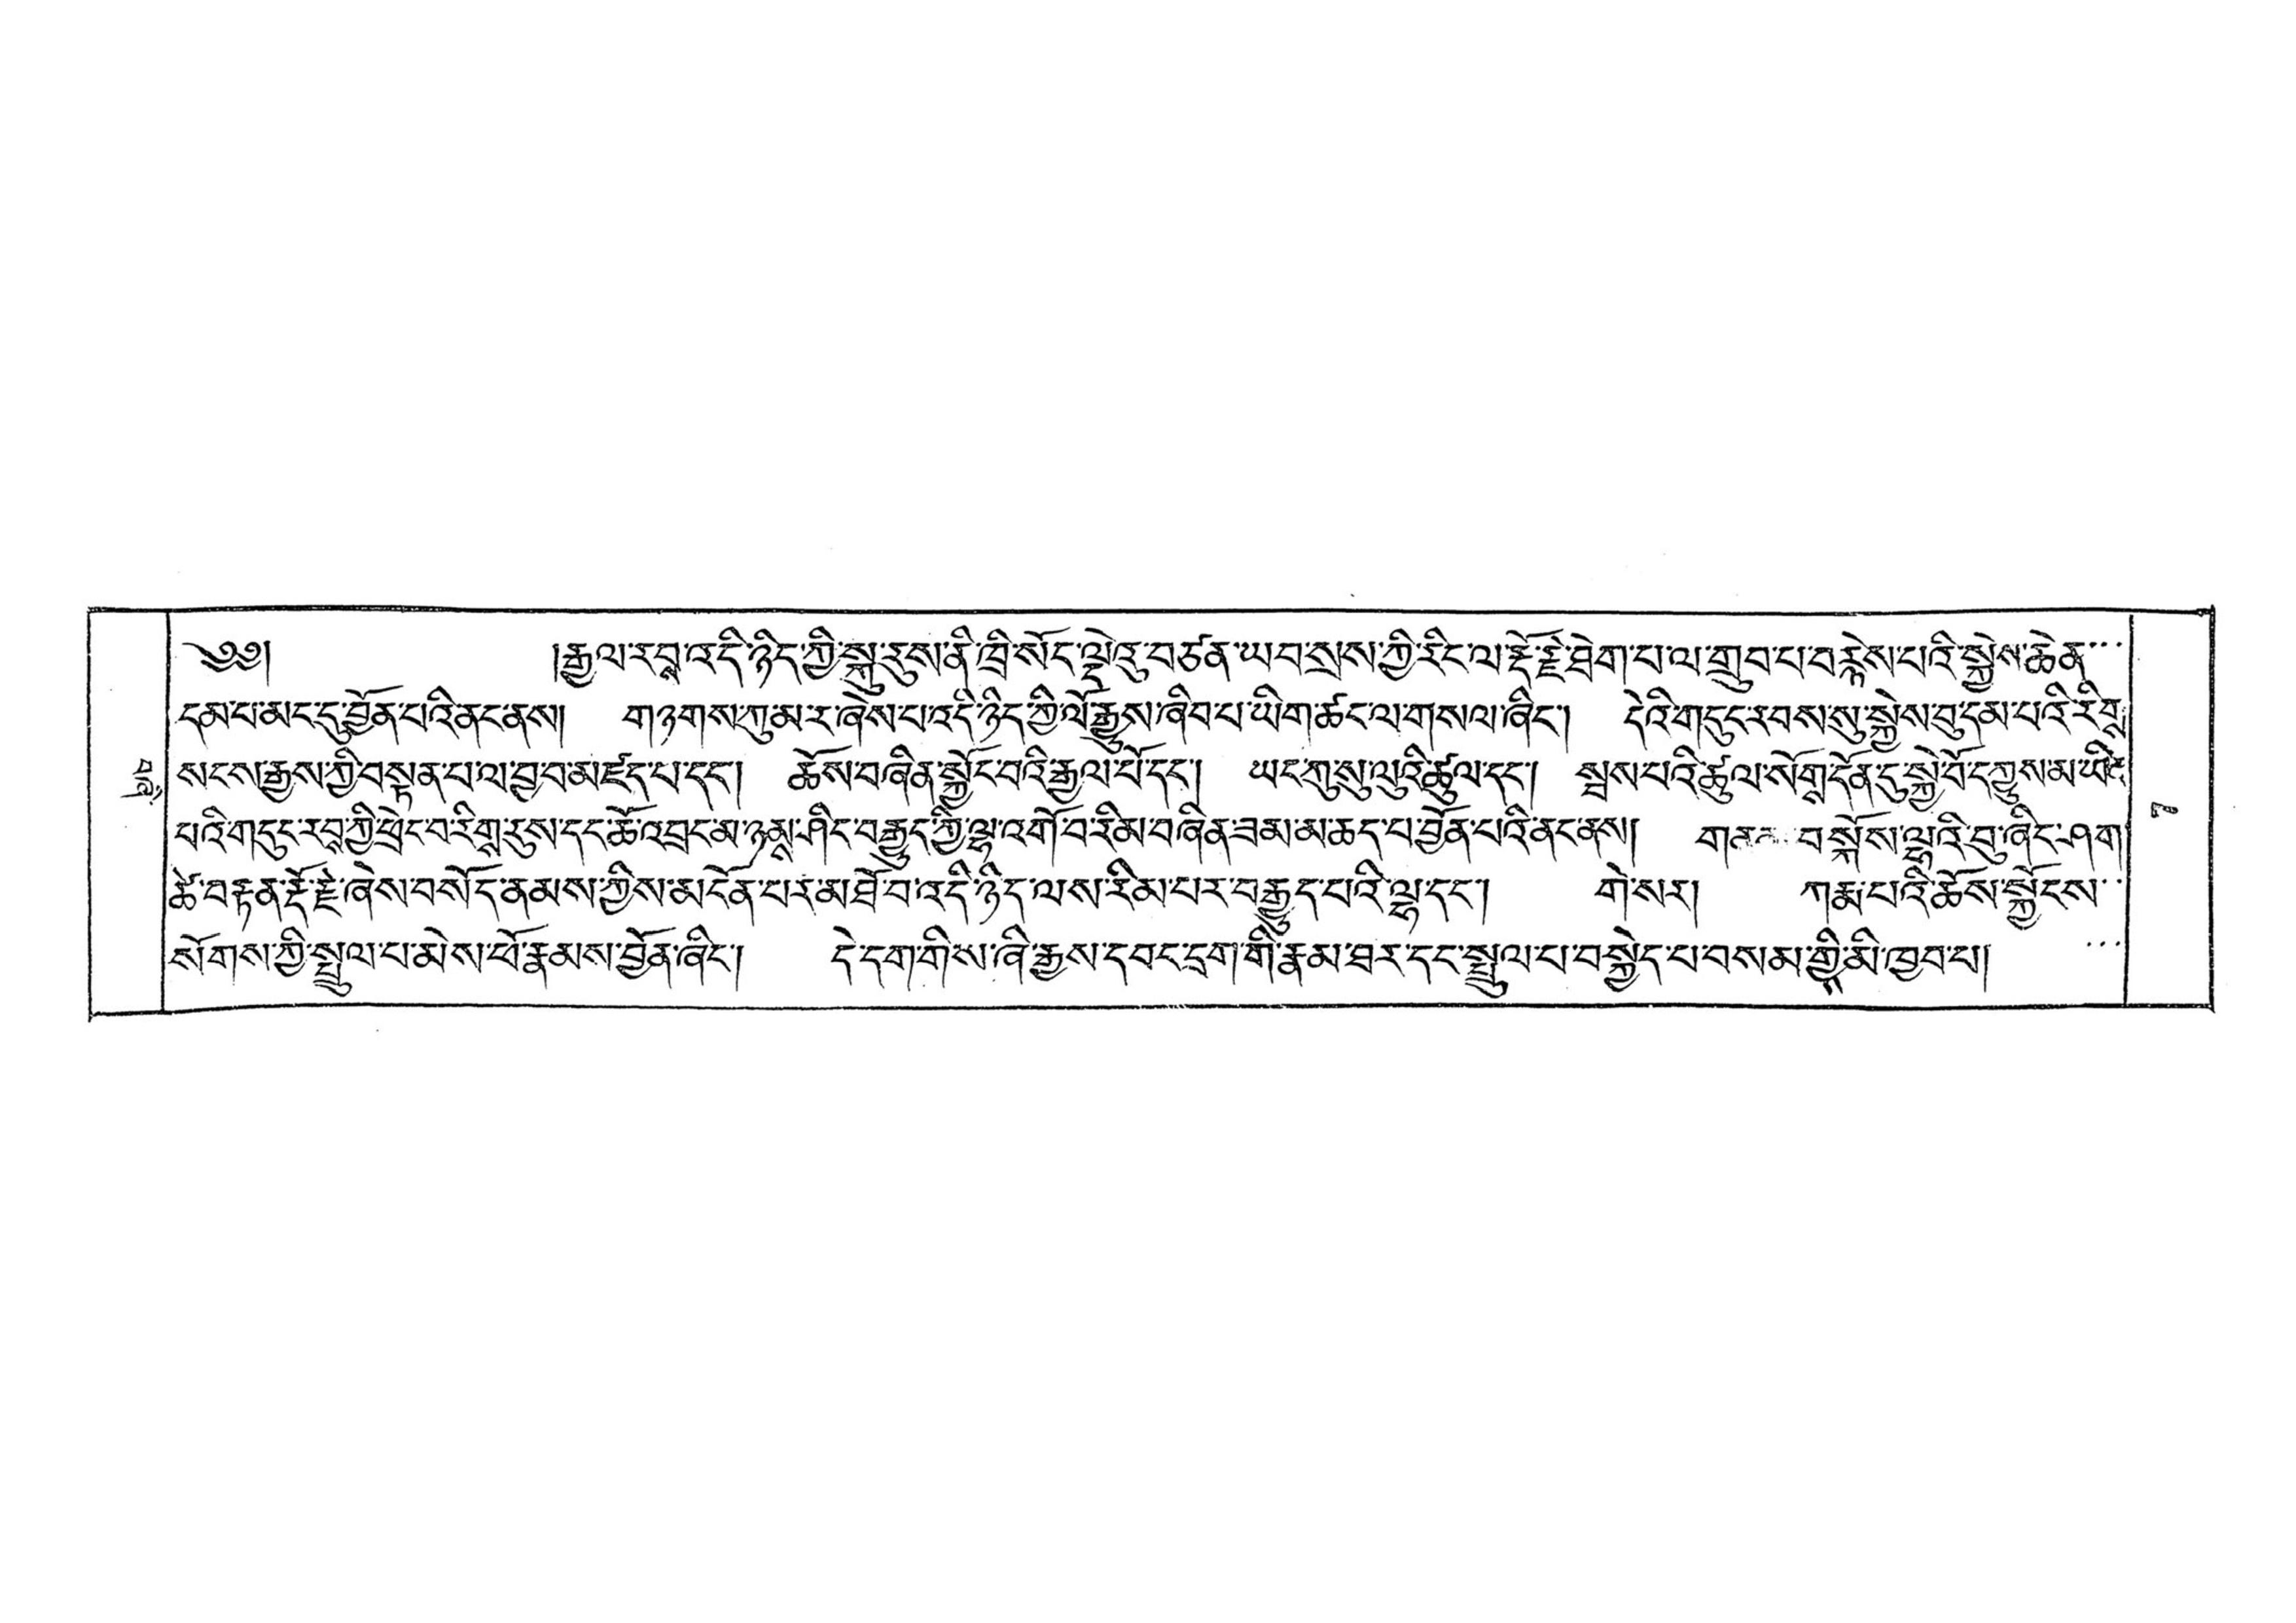 ༄༅། །རྒྱལ་རབྶ་འདི་ཉིད་ཀྱི་སྐུ་རུས་ནི་ཁྲི་སོང་ལྡེའུ་བཙན་ཡབ་སྲས་ཀྱི་རིང་ལ་རྡོ་རྗེ་ཐེག་པ་ལ་གྲུབ་པ་བརྙེས་པའི་སྐྱེས་ཆེན་
དམ་པ་མང་དུ་བྱོན་པའི་ནང་ནས། གཉགས་ཀུ་མ་ར་ཞེས་པ་འདི་ཉིད་ཀྱི་ལོ་རྒྱུས་ཞིབ་པ་ཡིག་ཚང་ལ་གསལ་ཞིང་། དེའི་གདུང་རབས་སུ་སྐྱེས་བུ་དམ་པའི་རིགྶ
སངས་རྒྱས་ཀྱི་བསྟན་པ་ལ་བྱ་བ་མཛད་པ་དང་། ཆོས་བཞིན་སྐྱོང་བའི་རྒྱལ་པོ་དང་། ཡང་ཀུ་སུ་ལུའི་ཚུལ་དང་། སྦས་པའི་ཚུལ་སོགྶ་དོན་དུ་སྐྱེ་བོ་དཀྱུས་མ་ཡིན
པའི་གདུང་རབྶ་ཀྱི་ཕྲེང་བ་རིགྶ་རུས་དང་ཆོ་འབྲང་མ་ཉམྶ་ཤིང་བརྒྱུད་ཀྱི་ལྷ་འགོ་བ་རིམ་བཞིན་ཟམ་མ་ཆད་པ་བྱོན་པའི་ནང་ནས། བསྐོས་ལྷའི་བུ་ཞིང་ཤག
ཚེ་བརྟན་རྡོ་རྗེ་ཞེས་བསོད་ནམས་ཀྱིས་མངོན་པར་མཐོ་བ་འདི་ཉིད་ལས་རིམ་པར་བརྒྱུད་པའི་ལྷ་དང་། གེ་སར། ཀརྨ་པའི་ཆོས་སྐྱོངས་
སོགས་ཀྱི་སྤྲུལ་པ་མེས་ཕོ་རྣམས་བྱོན་ཞིང་། དེ་དག་གིས་ཞི་རྒྱས་དབང་དྲག་གི་རྣམ་ཐར་དང་སྤྲུལ་པ་བསྐྱེད་པ་བསམ་གྱིྶ་མི་ཁྱབ་པ།